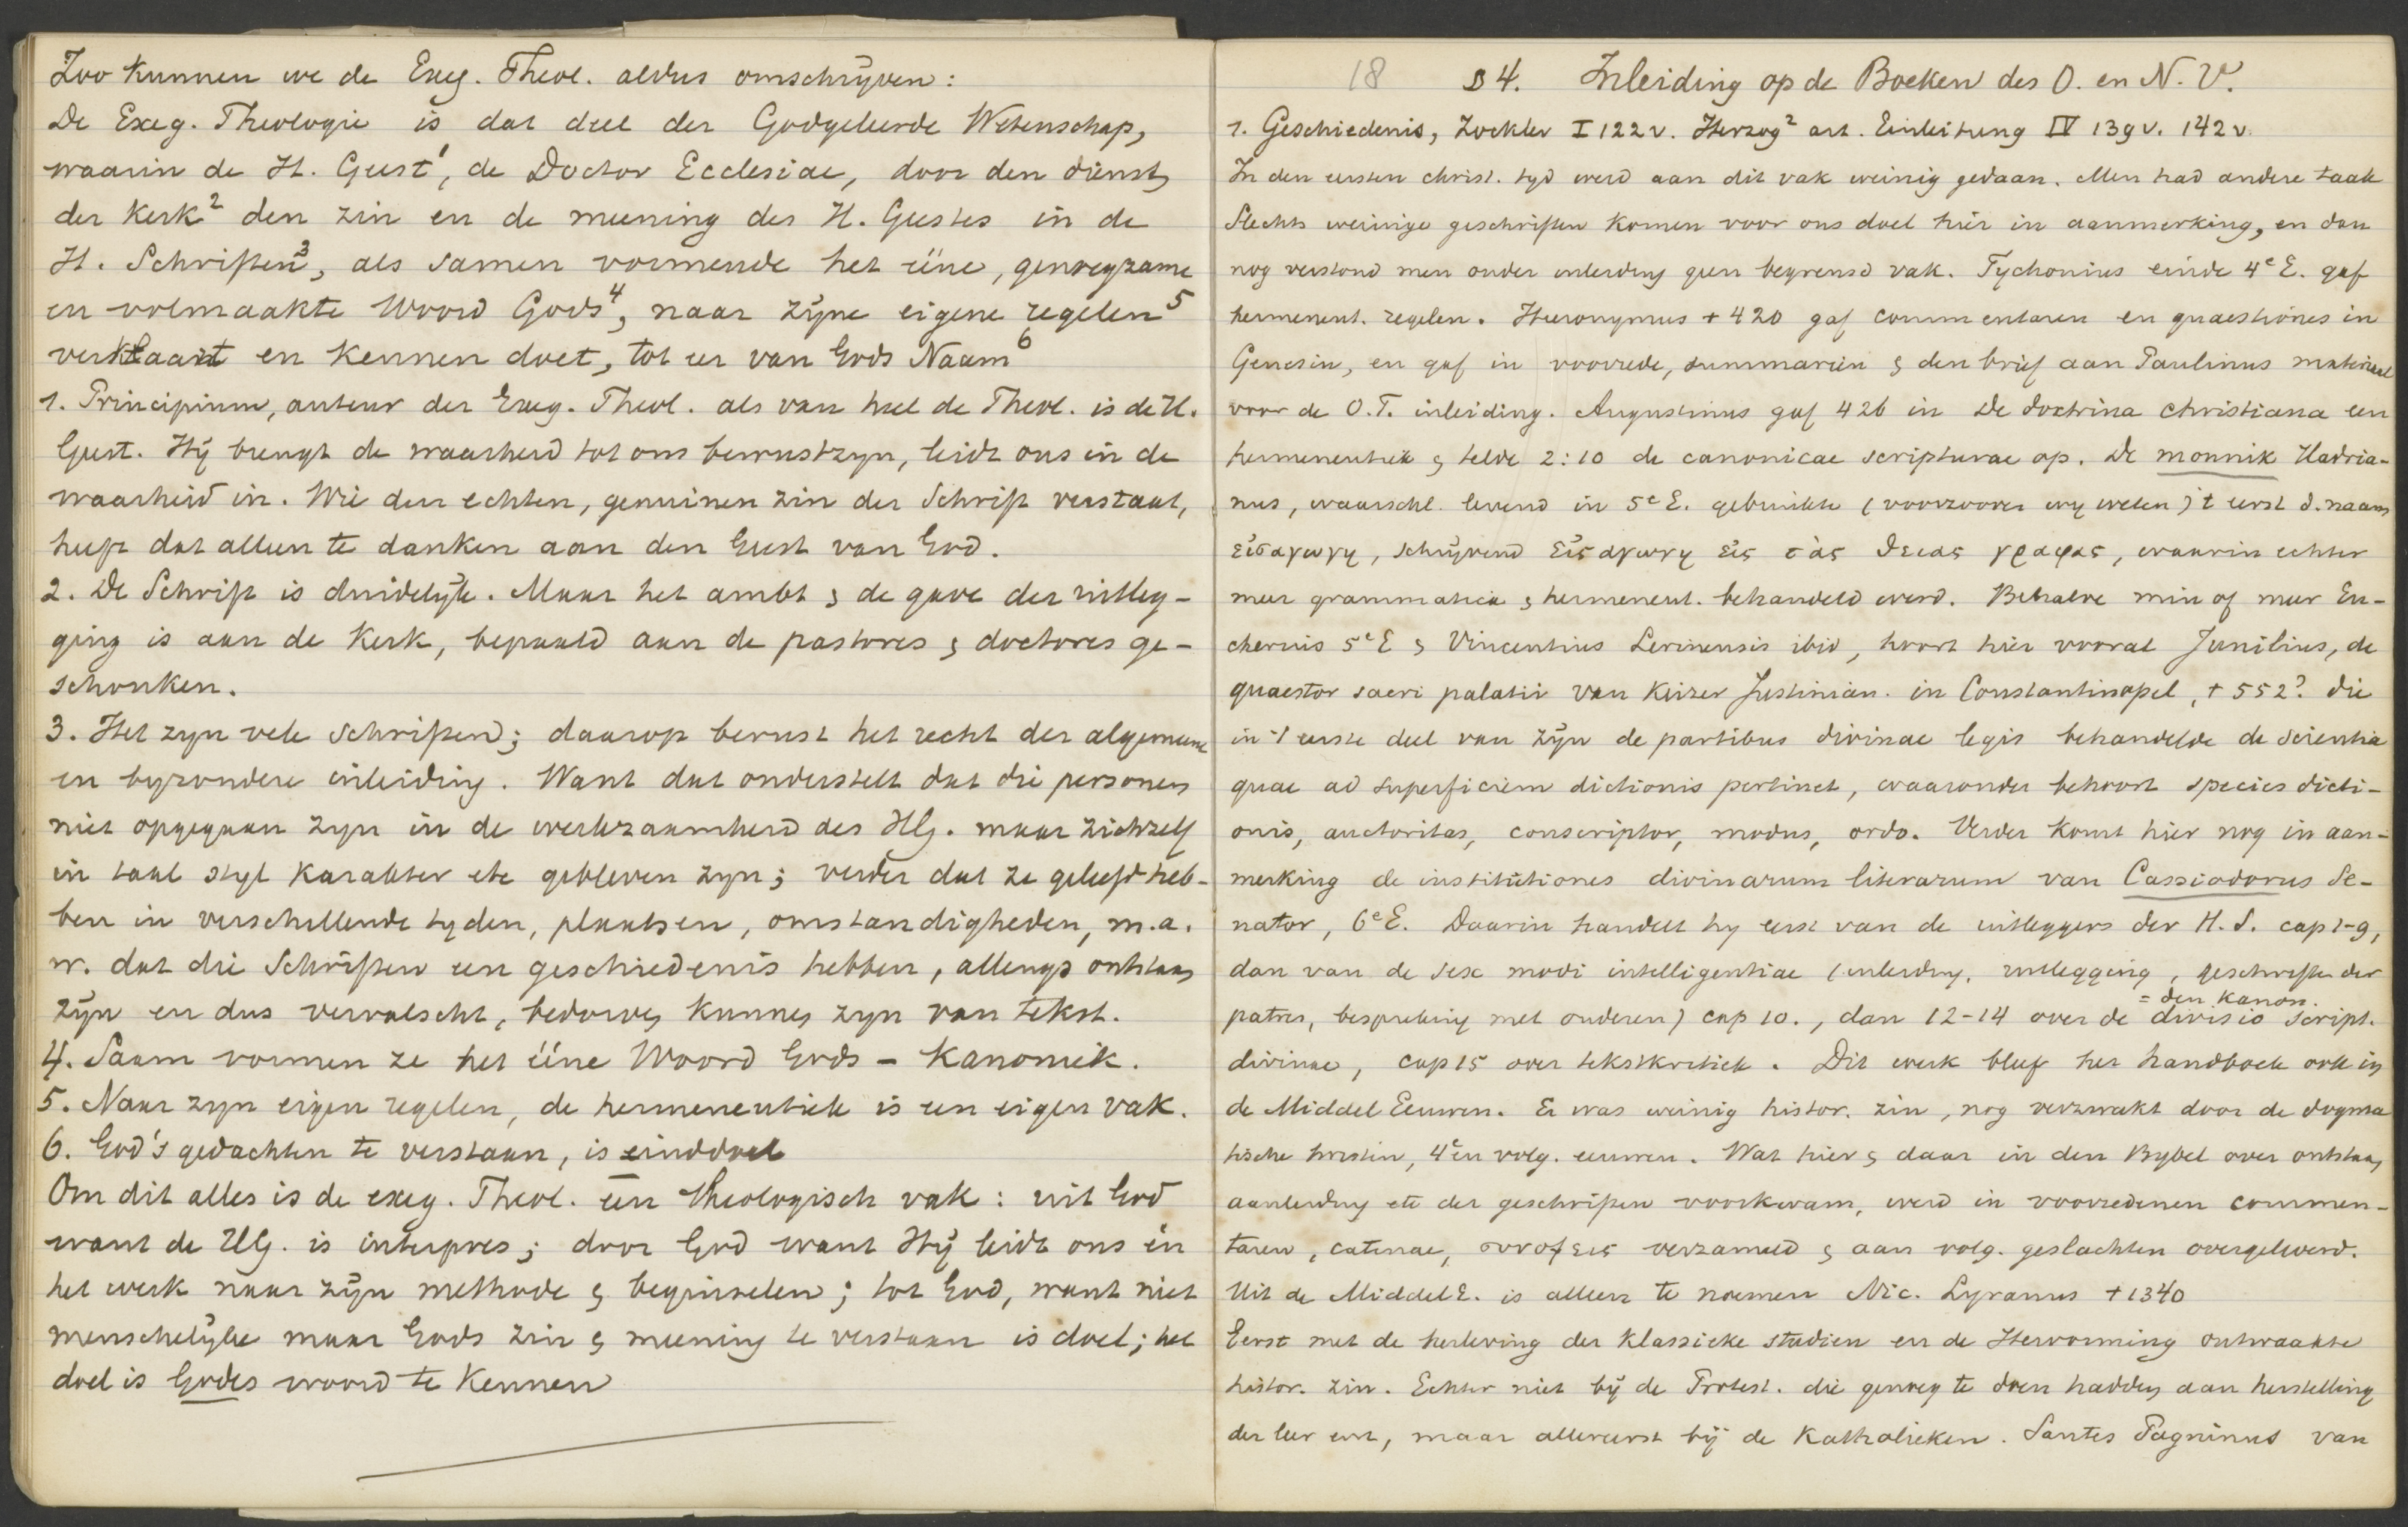 Zoo kunnen we de Exeg. Theol. aldus omschrijven:
De Exeg. Theologie is dat deel der Godgeleerde Wetenschap,
waarin de H. Geest¹, de Doctor Ecclesiae, door den dienst
der Kerk² den zin en de meening des H. Geestes in de
H. Schriften³, als samen vormende het ééne, genoegzame
en volmaakte Woord Gods⁴, naar zijne eigene regelen⁵
verklaart en kennen doet, tot eer van Gods Naam⁶
1. Principium, auteur der Exeg. Theol. als van heel de Theol. is de H.
Geest. Hij brengt de waarheid tot ons bewustzyn, leidt ons in de
waarheid in. Wie den echten, genuinen zin der Schrift verstaat,
heeft dat alleen te danken aan den Geest van God.
2. De Schrift is duidelijk. Maar het ambt & de gave der uitleg-
ging is aan de Kerk, bepaald aan de pastores & doctores ge-
schonken.
3. Het zyn vele schriften; daarop berust het recht der algemeene
en byzondere inleiding. Want dat onderstelt dat die personen
niet opgegaan zyn in de werkzaamheid des HG. maar zichzelf
in taal styl karakter etc gebleven zyn; verder dat ze geleefd heb-
ben in verschillende tyden, plaatsen, omstandigheden, m.a.
w. dat die Schriften een geschiedenis hebben, allengs ontstaan
zijn en dus vervalscht, bedorven kunnen zyn van tekst.
4. Saam vormen ze het ééne Woord Gods – Kanoniek.
5. Naar zyn eigen regelen, de hermeneutiek is een eigen vak.
6. God's gedachten te verstaan, is einddoel
Om dit alles is de exeg. Theol. een theologisch vak: uit God
want de HG. is interpres; door God want Hij leidt ons in
het werk naar zijn methode & beginselen; tot God, want niet
menschelijke maar Gods zin & meening te verstaan is doel; het
doel is Godes woord te kennen
18 § 4. Inleiding op de Boeken des O. en N. V.
1. Geschiedenis, Zockler I 122 v. Herzog² art. Einleitung IV 139 v. 142 v.
In den eersten christ. tyd werd aan dit vak weinig gedaan. Men had andere taak
Slechts weinige geschriften komen voor ons doel hier in aanmerking, en dan
nog verstond men onder inleiding geen begrensd vak. Tychonius einde 4e E. gaf
hermeneut. regelen. Hieronymus + 420 gaf commentaren en quaestiones in
Genesin, en gaf in voorrede, summariën & den brief aan Paulinus materiaal
voor de O.T. inleiding. Augustinus gaf 426 in De doctrina christiana een
hermeneutiek & telde 2:10 de canonicae scripturae op. De monnik Hadria-
nus, waarschl. levend in 5e E. gebruikte (voorzoover wy weten) 't eerst d. naam
εἰσαγωγη, schrijvend εἰσαγωγη εἰς τὰς θειας γραφας, waarin echter
meer grammatica & hermeneut. behandeld werd. Behalve min of meer Eu-
cherius 5e E & Vincentius Lerinensis ibid, hoort hier vooral Junilius, de
quaestor sacri palatii van Keizer Justinian. in Constantinopel, + 552? die
in 't eerste deel van zijn de partibus divinae legis behandelde de scientia
quae ad superficiem dictionis pertinet, waaronder behoort species dicti-
onis, auctoritas, conscriptor, modus, ordo. Verder komt hier nog in aan-
merking de institutiones divinarum literarum van Cassiodorus Se-
nator, 6e E. Daarin handelt hy eerst van de uitleggers der H. S. cap 1-9,
dan van de sex modi intelligentiae (inleiding, uitlegging, geschriften der
patres, bespreking met anderen) cap 10., dan 12-14 over de divisio script.
= den kanon.
divinae, cap 15 over tekstkritiek. Dit werk bleef het handboek ook in
de Middel Eeuwen. Er was weinig histor. zin, nog verzwakt door de dogma
tische twisten, 4e en volg. eeuwen. Wat hier & daar in den Bybel over ontstaan
aanleiding etc der geschriften voorkwam, werd in voorredenen commen-
taren, catenae, συνοψεις verzameld & aan volg. geslachten overgeleverd.
Uit de Middel E. is alleen te noemen Nic. Lyranus + 1340
Eerst met de herleving der klassieke studien en de Hervorming ontwaakte
histor. zin. Echter niet bij de Protest. die genoeg te doen hadden aan herstelling
der leer enz, maar allereerst bij de Katholieken. Santes Pagninus van